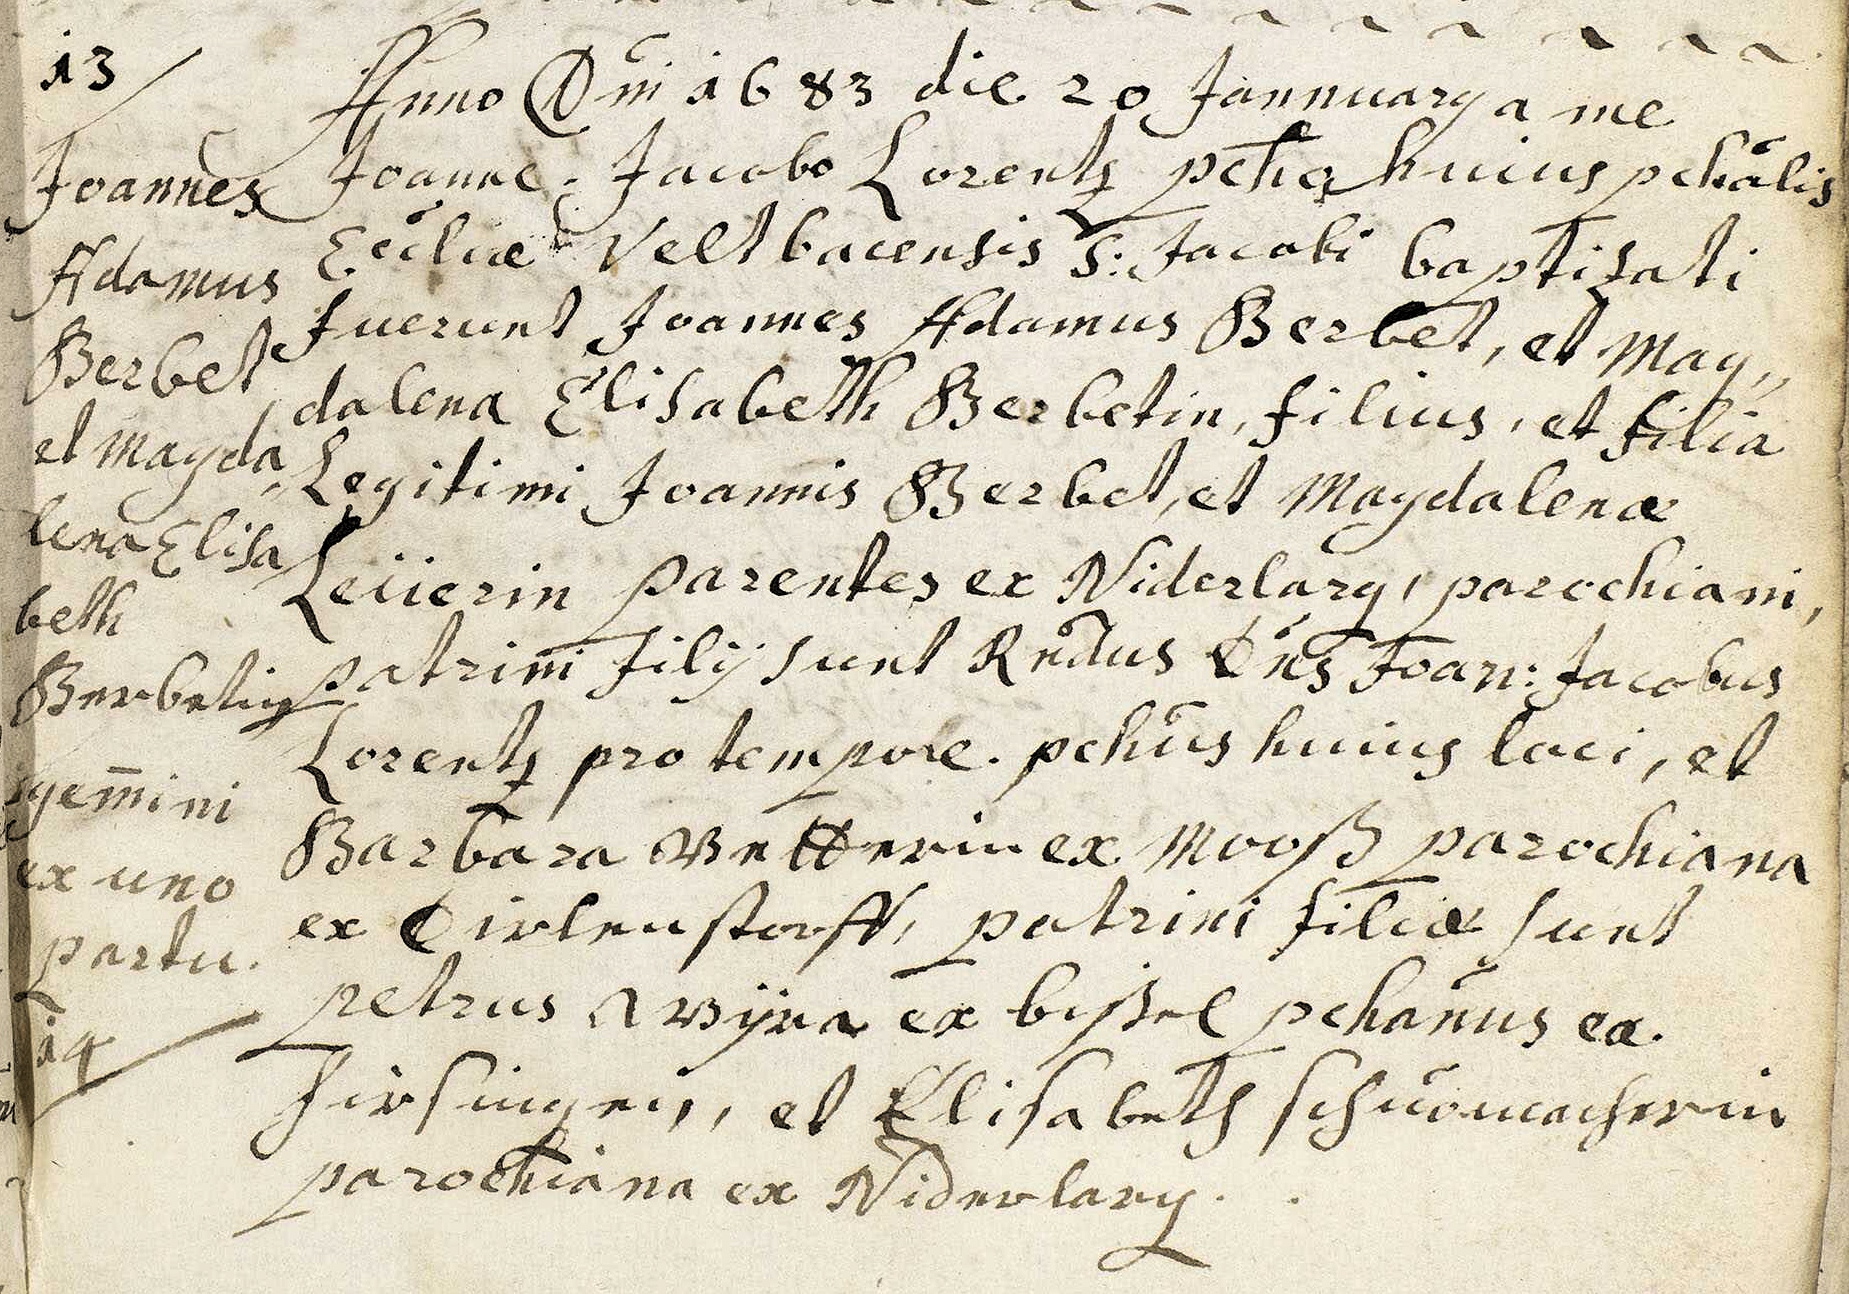 13
Joannes
Adamus
Berbet
et Magda„
lena Elisa
beth
Berbetin
gem̄ini
ex uno
partu.
14
Anno Dn̄i 1683 die 20 Jannuary a me
Joanne Jacobo Lorentz pcho huius pchalis
Eccliæ Veltbacensis S: Jacobi baptisati
fuerunt Joannes Adamus Berbet, et Mag„
dalena Elisabeth Berbetin, filius, et filia
Legitimi Joannis Berbet, et Magdalenæ
Leiierin parentes ex Niderlarg, parochiani,
patrini filij sunt Rndus Dns Joan: Jacobus
Lorentz pro tempore pchus huius loci, et
Barbara Vetterin ex Mooß parochiana
ex Dirlenstorff, patrini filiæ sunt
petrus ex bißel pchanus ex
hirsingen, et Elisabeth schuomacherin
parochiana ex Niderlarg.